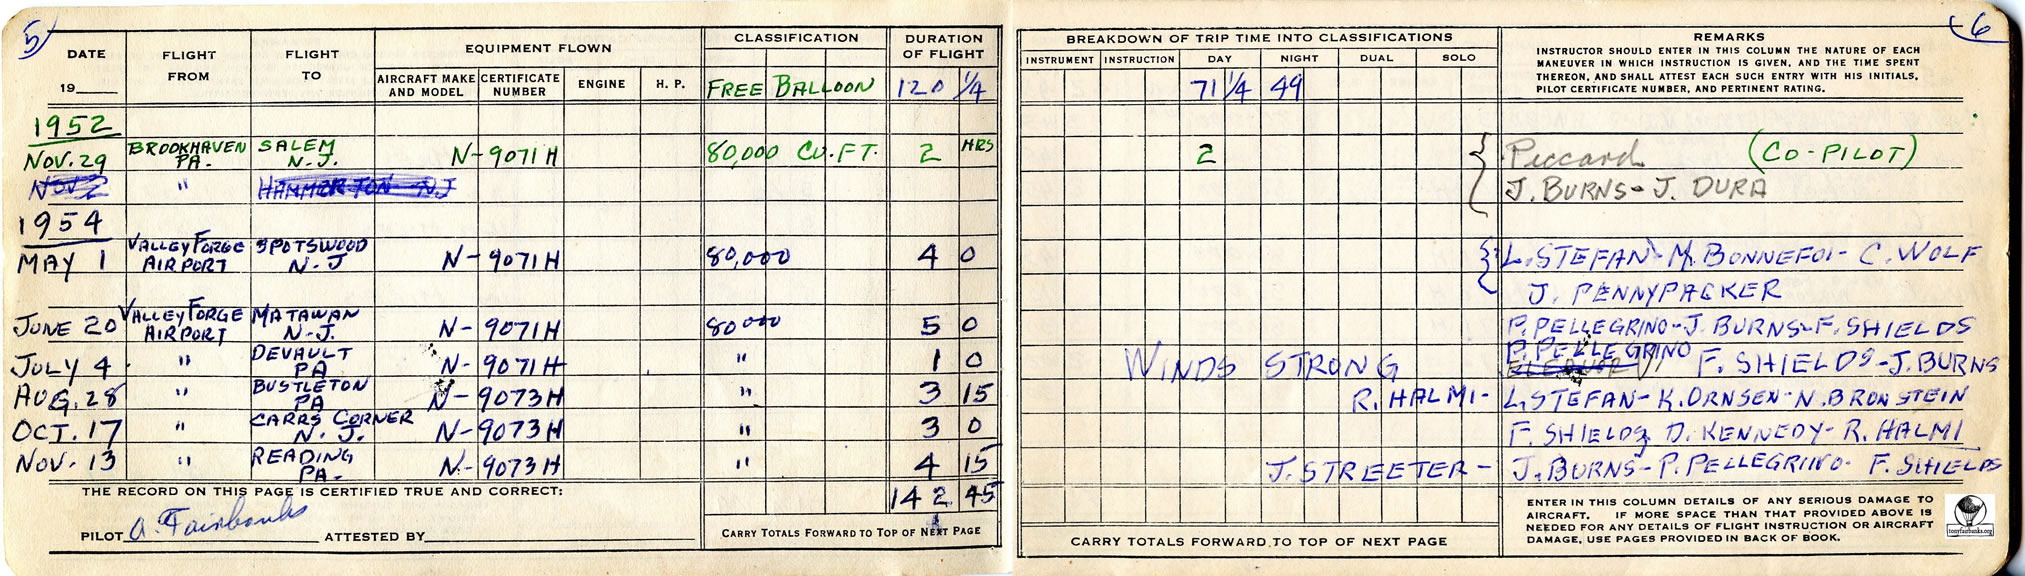 5
DATE
19
FLIGHT FROM
FLIGHT TO
EQUIPMENT FLOWN
AIRCRAFT MAKE AND MODEL
CERTIFICATE NUMBER
ENGINE
H. P.
CLASSIFICATION
FREE BALLOON
DURATION OF FLIGHT
120 1/4
1952
NOV. 29 BROOKHAVEN PA. SALEM N.J. N-9071H 80,000 CU.FT. 2 HRS
NOV 2 " HAMMERTON N.J
1954
MAY 1 VALLEY FORGE AIRPORT SPOTSWOOD N.J N-9071H 80,000 4 0
JUNE 20 VALLEY FORGE AIRPORT MATAWAN N.J. N-9071H 80000 5 0
JULY 4 " DEVAULT PA N-9071H " 1 0
AUG. 28 " BUSTLETON PA N-9073H " 3 15
OCT. 17 " CARRS CORNER N.J. N-9073H " 3 0
NOV. 13 " READING PA. N-9073H " 4 15
THE RECORD ON THIS PAGE IS CERTIFIED TRUE AND CORRECT:
142 45
PILOT A. Fairbanks ATTESTED BY
CARRY TOTALS FORWARD TO TOP OF NEXT PAGE
6
BREAKDOWN OF TRIP TIME INTO CLASSIFICATIONS
INSTRUMENT INSTRUCTION DAY NIGHT DUAL SOLO
71 1/4 49
REMARKS
INSTRUCTOR SHOULD ENTER IN THIS COLUMN THE NATURE OF EACH
MANEUVER IN WHICH INSTRUCTION IS GIVEN, AND THE TIME SPENT
THEREON, AND SHALL ATTEST EACH SUCH ENTRY WITH HIS INITIALS,
PILOT CERTIFICATE NUMBER, AND PERTINENT RATING.
2 Piccard (CO-PILOT)
J. BURNS - J. DURA
L. STEFAN - M. BONNEFOI - C. WOLF
J. PENNYPACKER
P. PELLEGRINO - J. BURNS - F. SHIELDS
P. PELLEGRINO
WINDS STRONG F. SHIELDS - J. BURNS
R. HALMI - L. STEFAN - K. ORNSEN - N. BRONSTEIN
F. SHIELDS, D. KENNEDY - R. HALMI
J. STREETER - J. BURNS - P. PELLEGRINO - F. SHIELDS
CARRY TOTALS FORWARD TO TOP OF NEXT PAGE
ENTER IN THIS COLUMN DETAILS OF ANY SERIOUS DAMAGE TO
AIRCRAFT. IF MORE SPACE THAN THAT PROVIDED ABOVE IS
NEEDED FOR ANY DETAILS OF FLIGHT INSTRUCTION OR AIRCRAFT
DAMAGE, USE PAGES PROVIDED IN BACK OF BOOK.
tonyfairbanks.org